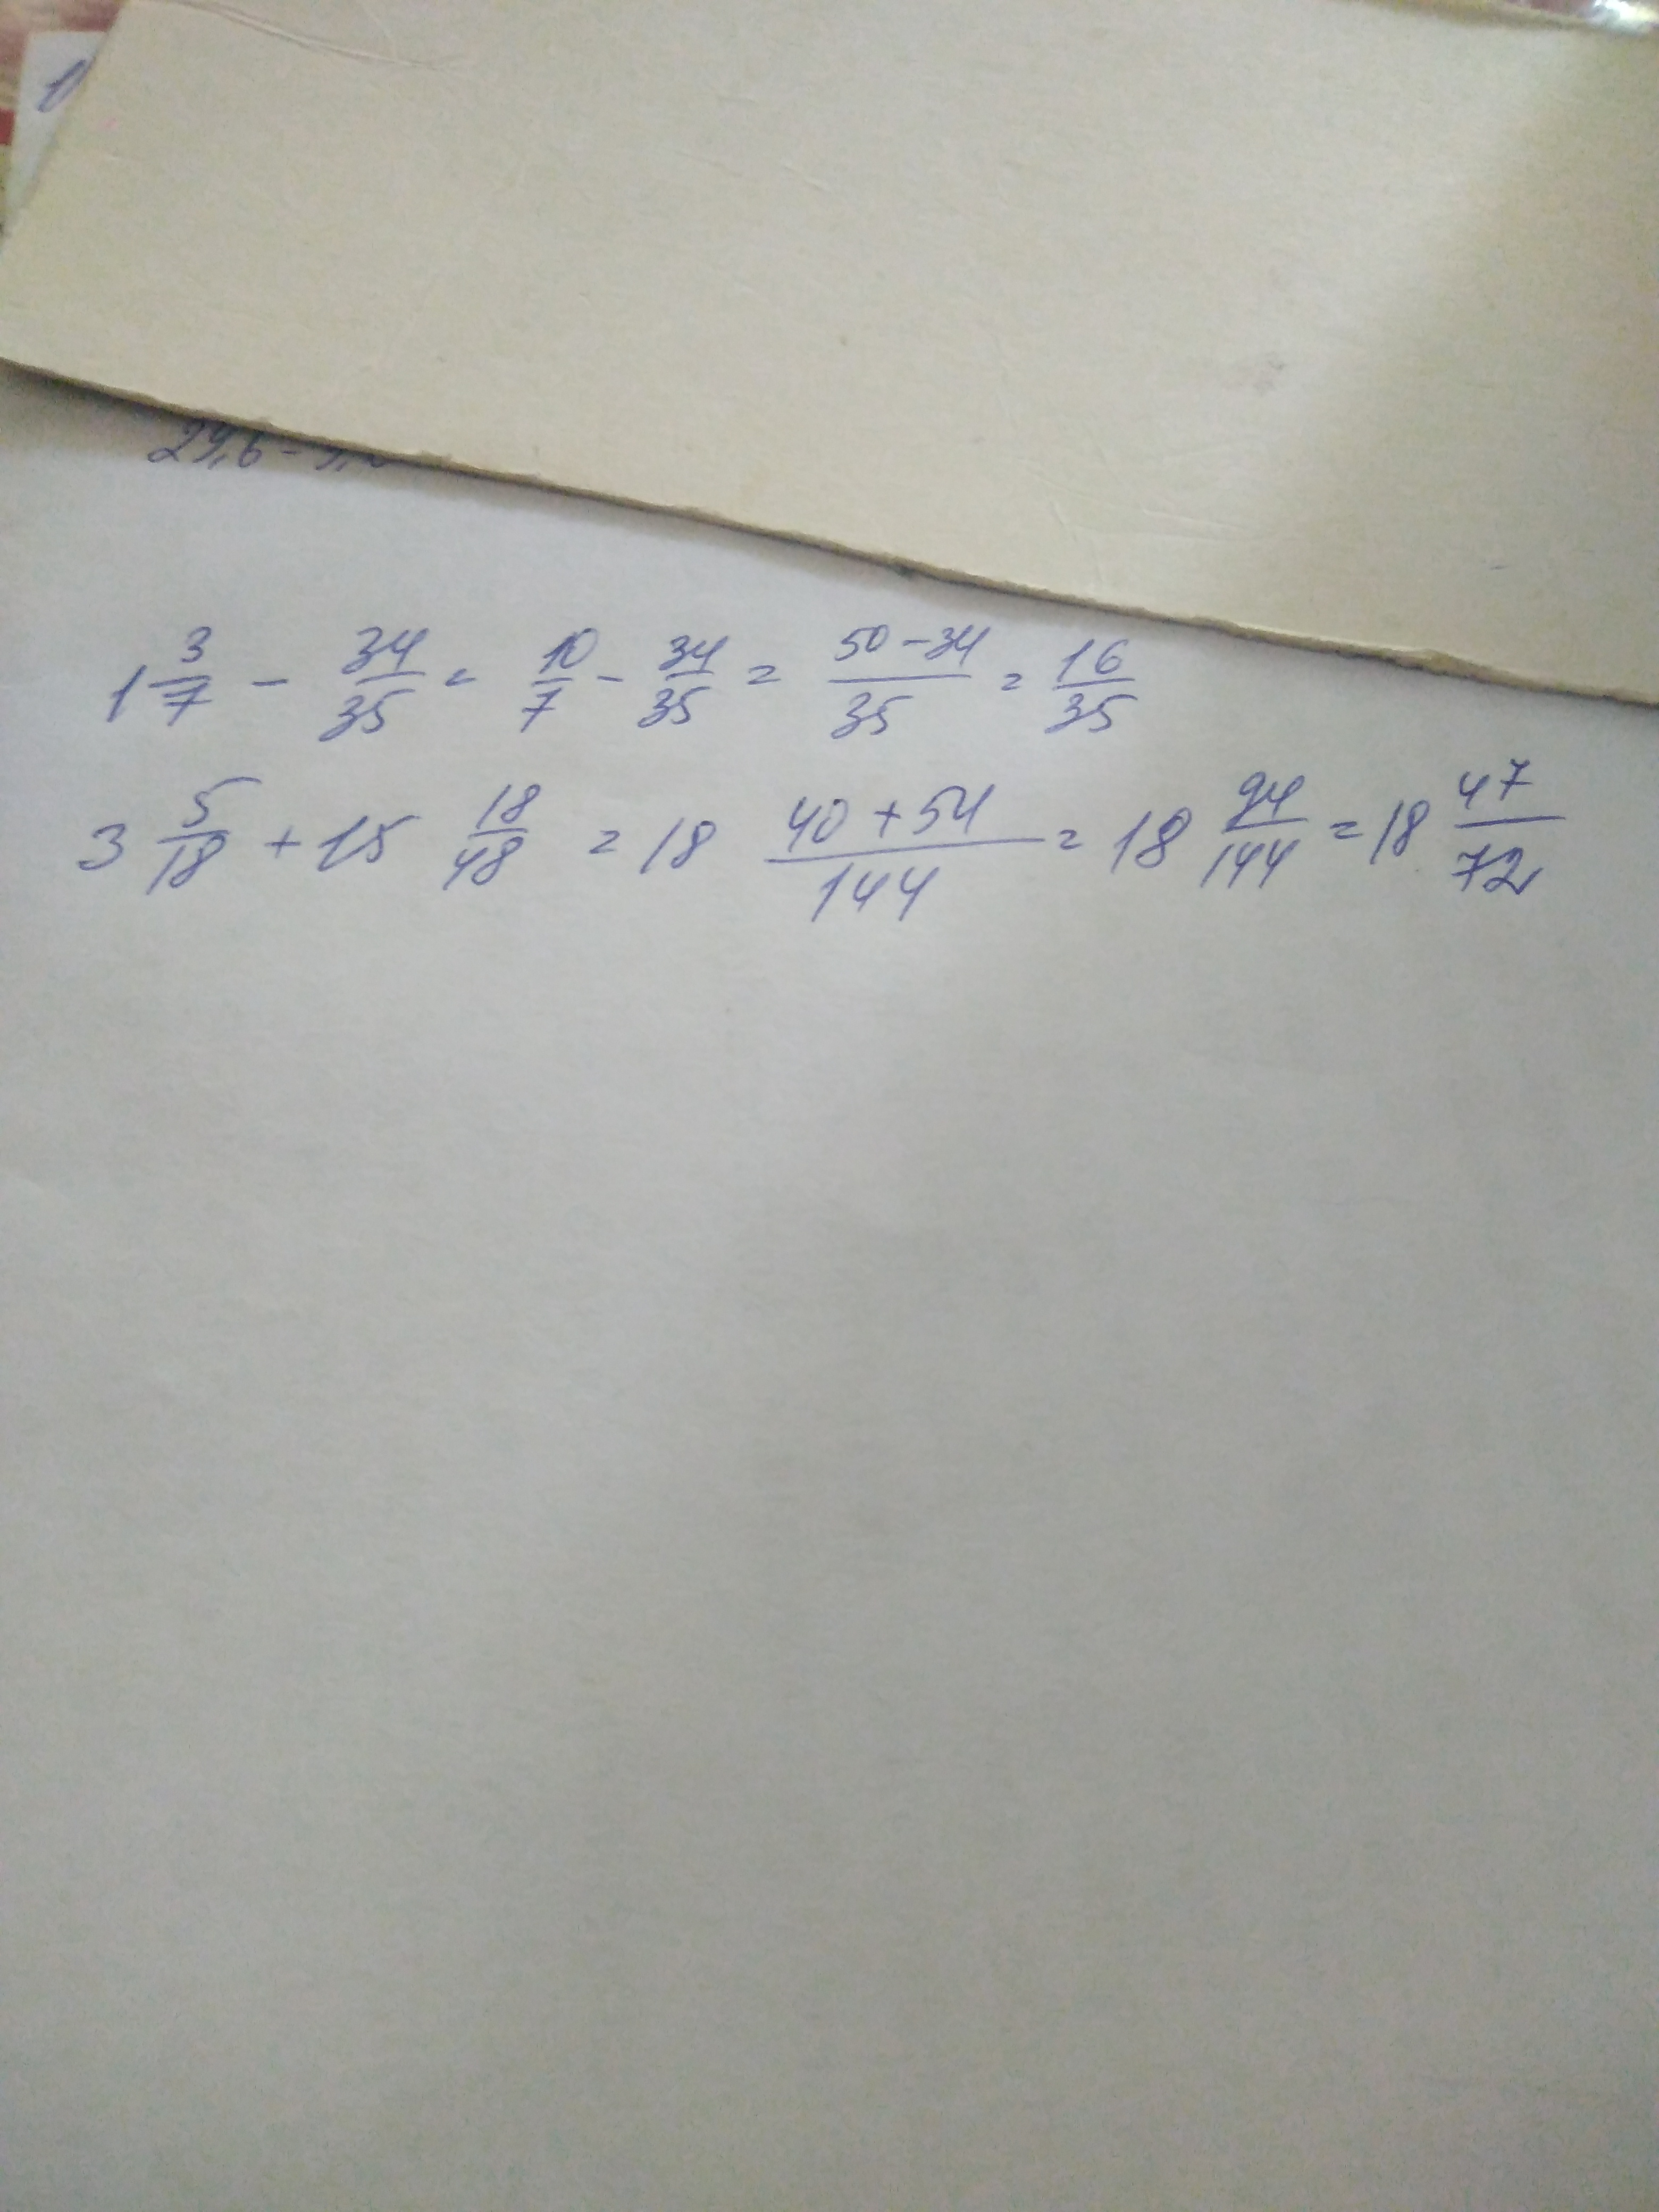 29,6 -
1 3/7 - 34/35 = 10/7 - 34/35 = 50-34/35 = 16/35
3 5/18 + 15 18/48 = 18 40+54/144 = 18 94/144 = 18 47/72